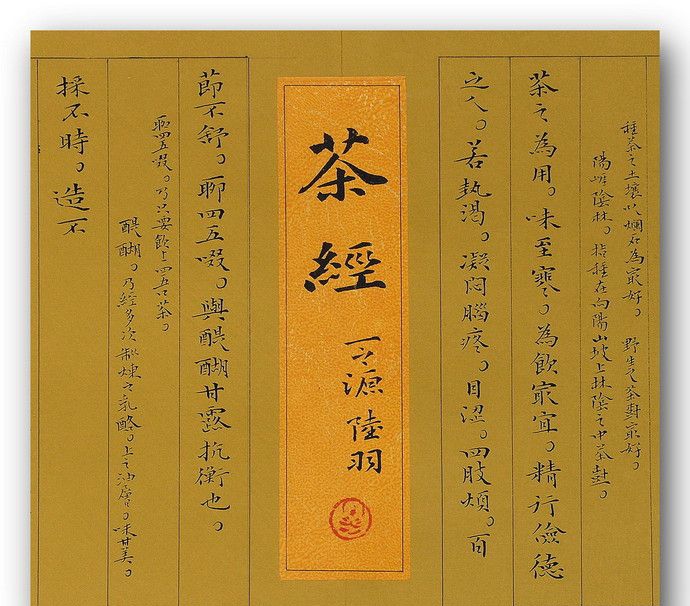 種茶之土壤以爛石為㝡好。 野生之茶尌㝡好。
陽崖陰林。指種在向陽山坡上林陰之中茶尌。
茶之為用。味至寒。為飲㝡宜。精行儉德
之人。若熱渴。凝悶腦疼。目澀。四肢煩。百
茶經
一之源 陸羽
節不舒。聊四五啜。與醍醐甘露抗衡也。
聊四五啜。乃只要飲上四五口茶。
醍醐。乃經多次制煉之乳酪。上之油層。味甘美。
採不時。造不